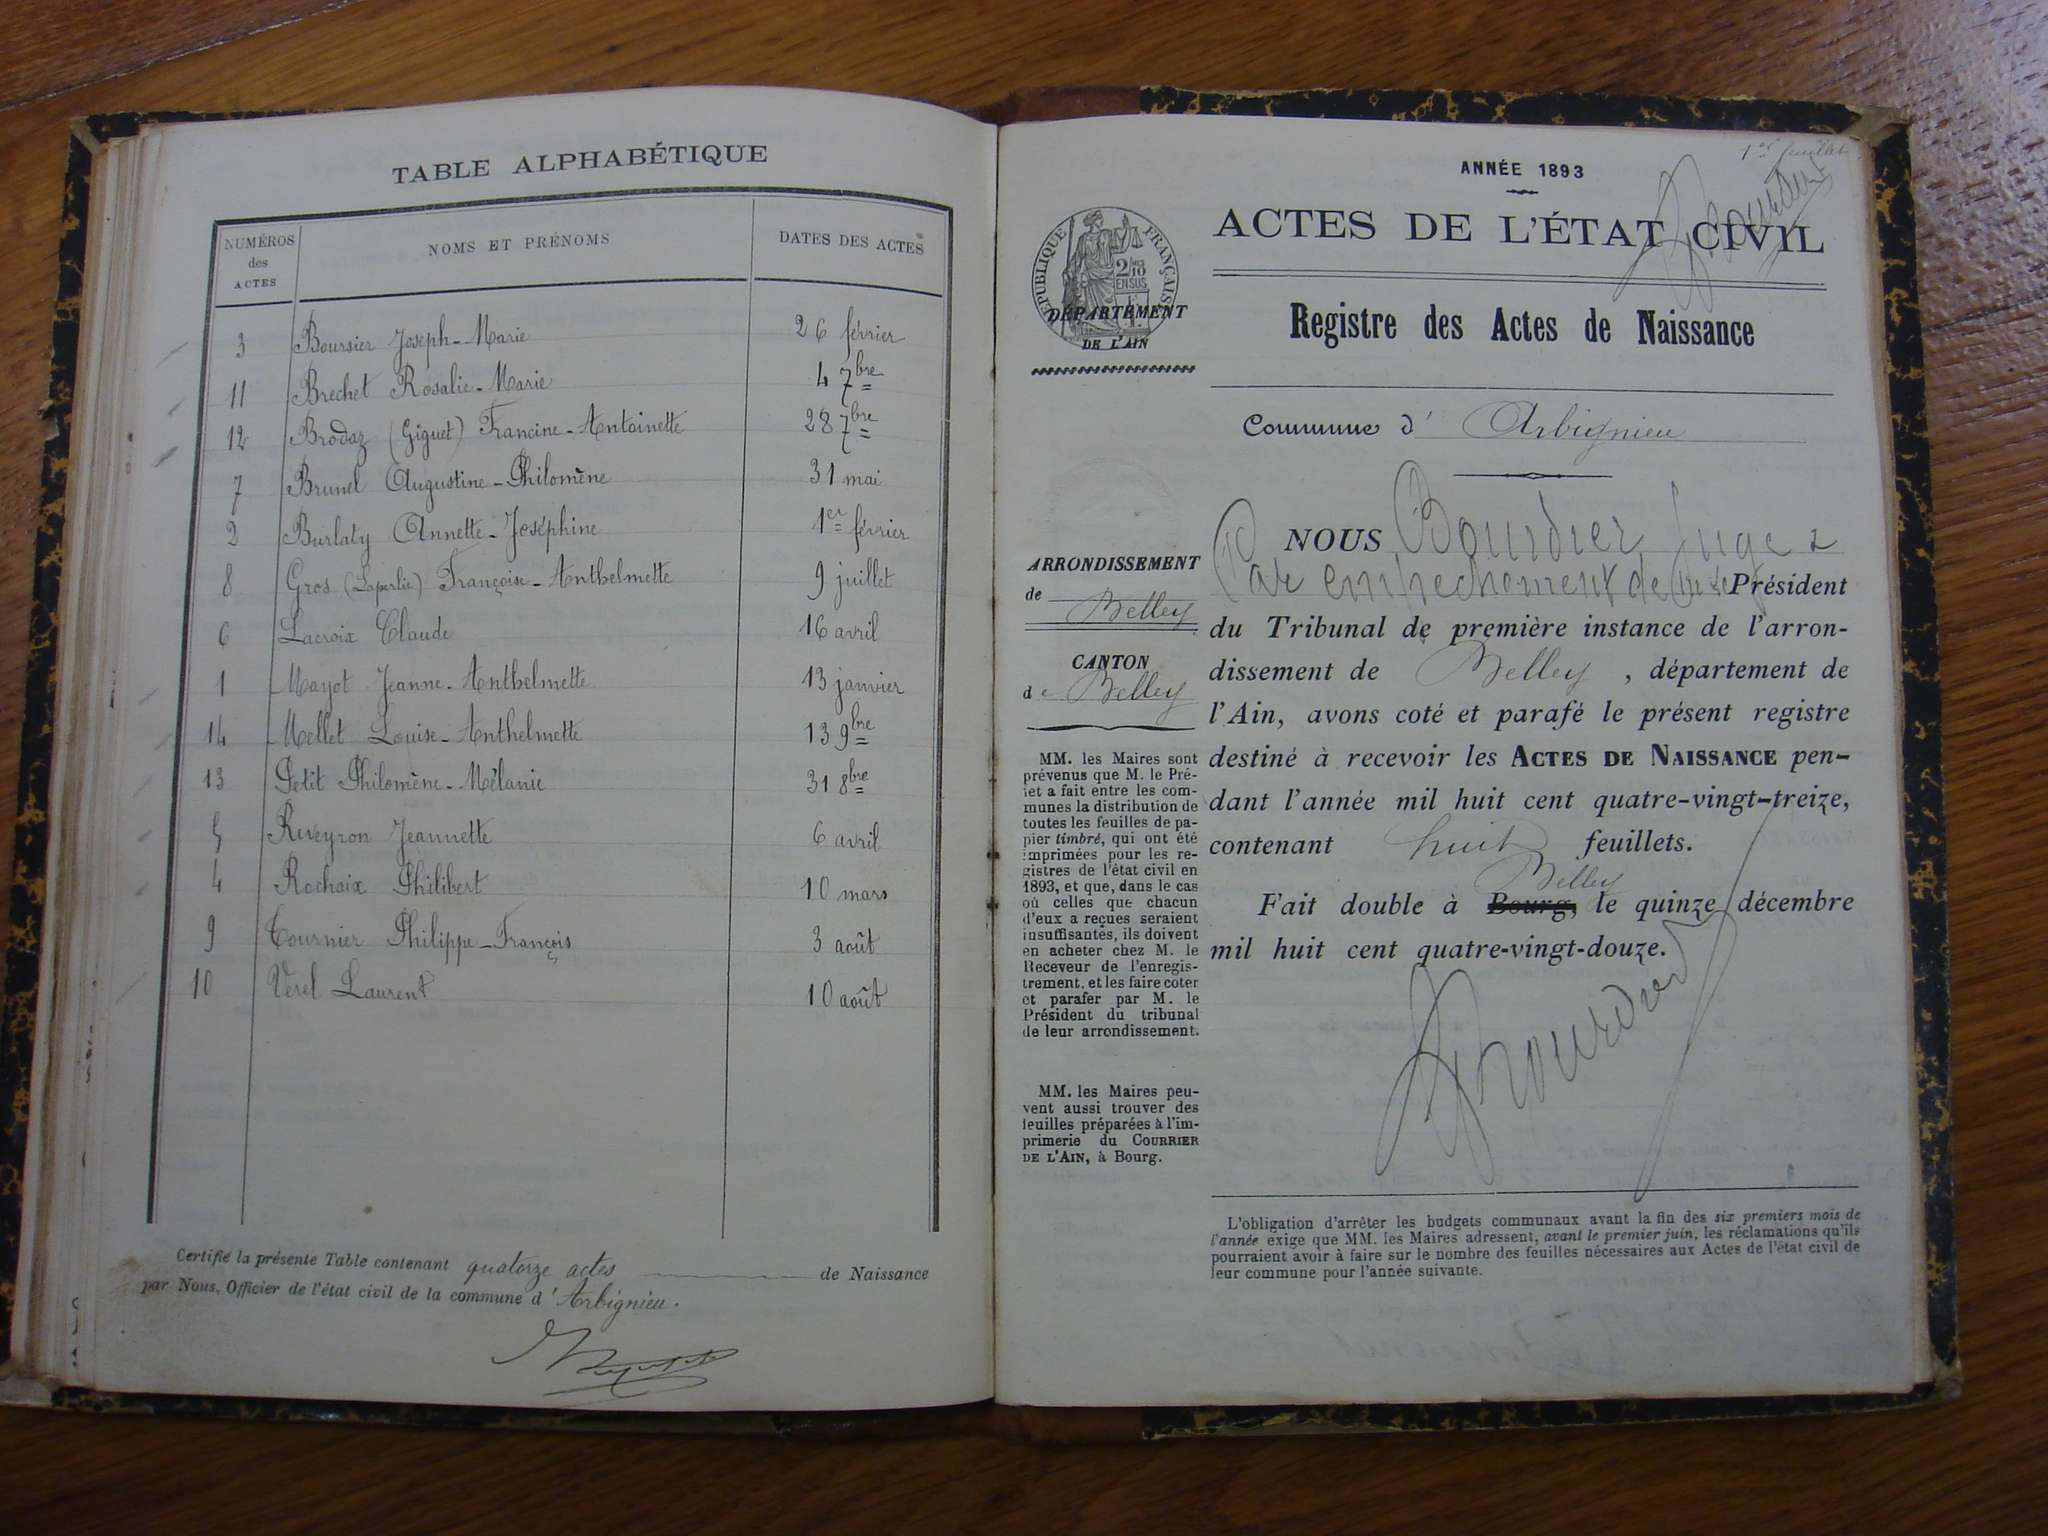 TABLE ALPHABÉTIQUE
NUMÉROS des ACTES
NOMS ET PRÉNOMS
DATES DES ACTES
3 Boursier Joseph-Marie 26 février
11 Brechet Rosalie-Marie 4 7bre
12 Brodaz (Giguet) Francine-Antoinette 28 7bre
7 Brunel Augustine-Philomène 31 mai
2 Burlaty Annette-Joséphine 1er février
8 Gros (Laperlie) Françoise-Anthelmette 9 juillet
6 Lacroix Claude 16 avril
1 Mayot Jeanne-Anthelmette 13 janvier
14 Mellet Louise-Anthelmette 13 9bre
13 Petit Philomène-Mélanie 31 8bre
5 Reveyron Jeannette 6 avril
4 Rochaix Philibert 10 mars
9 Tournier Philippe-François 3 août
10 Verel Laurent 10 août
Certifié la présente Table contenant quatorze actes de Naissance
par Nous, Officier de l'état civil de la commune d'Arbignieu.
1er feuillet
Bourdier
ANNÉE 1893
ACTES DE L'ÉTAT CIVIL
RÉPUBLIQUE FRANÇAISE
2/10
EN SUS
DÉPARTEMENT
DE L'AIN
Registre des Actes de Naissance
Commune d' Arbignieu
ARRONDISSEMENT
de Belley
CANTON
de Belley
MM. les Maires sont
prévenus que M. le Pré-
fet a fait entre les com-
munes la distribution de
toutes les feuilles de pa-
pier timbré, qui ont été
imprimées pour les re-
gistres de l'état civil en
1893, et que, dans le cas
où celles que chacun
d'eux a reçues seraient
insuffisantes, ils doivent
en acheter chez M. le
Receveur de l'enregis-
trement, et les faire coter
et parafer par M. le
Président du tribunal
de leur arrondissement.
MM. les Maires peu-
vent aussi trouver des
feuilles préparées à l'im-
primerie du COURRIER
DE L'AIN, à Bourg.
NOUS Bourdier Juge
Par empechement de Président
du Tribunal de première instance de l'arron-
dissement de Belley, département de
l'Ain, avons coté et parafé le présent registre
destiné à recevoir les ACTES DE NAISSANCE pen-
dant l'année mil huit cent quatre-vingt-treize,
contenant huit feuillets.
Belley
Fait double à Bourg, le quinze décembre
mil huit cent quatre-vingt-douze.
Bourdier
L'obligation d'arrêter les budgets communaux avant la fin des six premiers mois de
l'année exige que MM. les Maires adressent, avant le premier juin, les réclamations qu'ils
pourraient avoir à faire sur le nombre des feuilles nécessaires aux Actes de l'état civil de
leur commune pour l'année suivante.